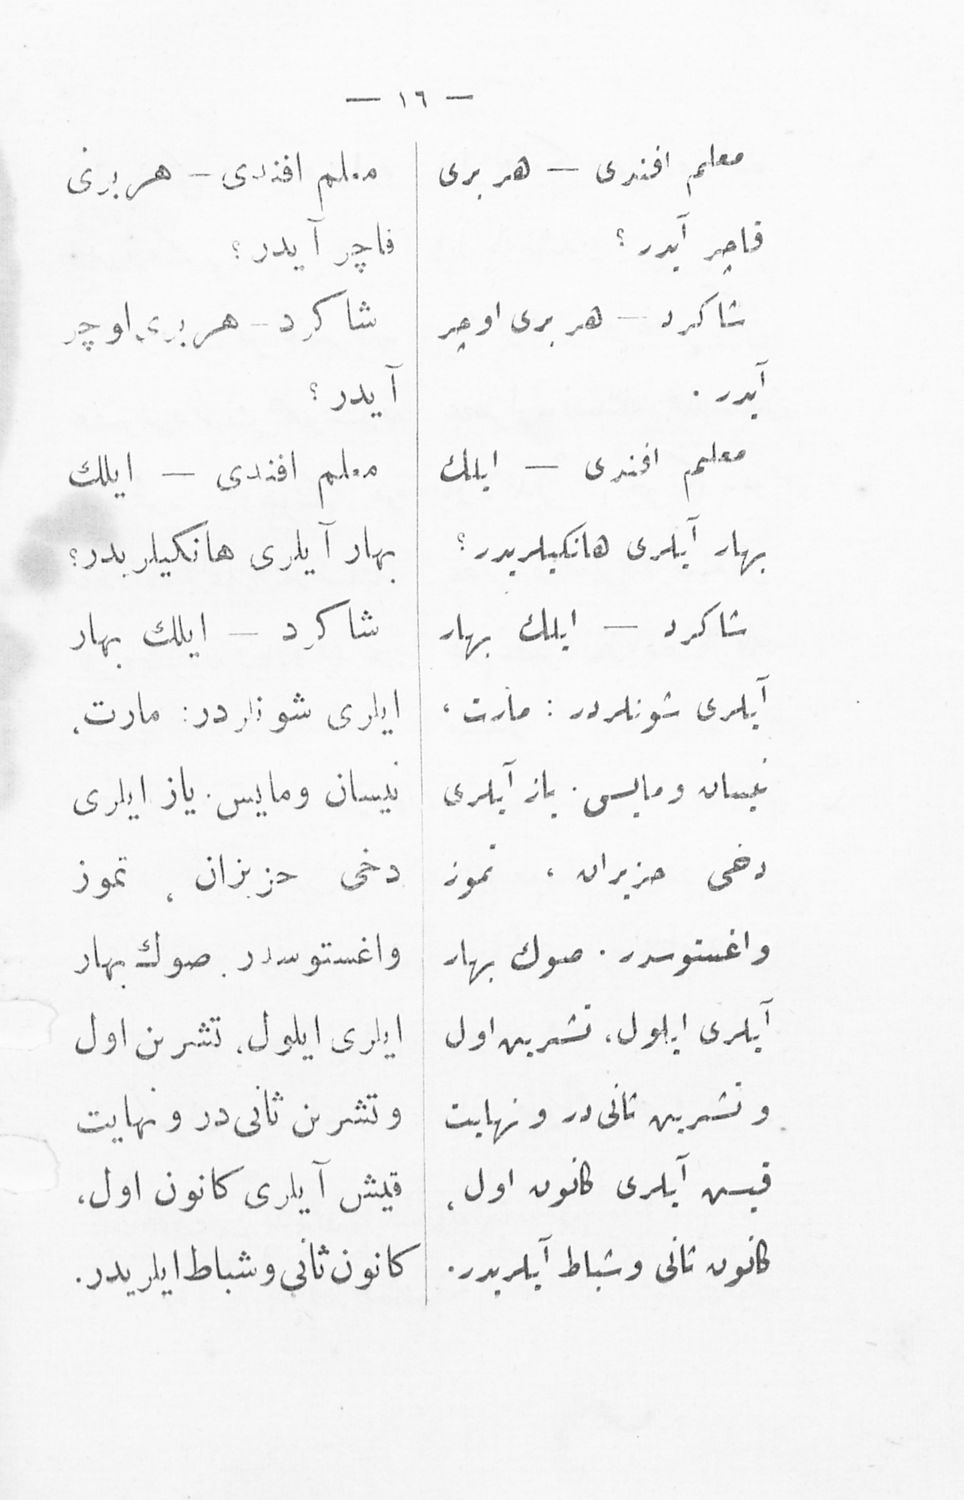 — ١٦ —
معلم افندی — هر بری
قاچر آیدر ؟
شاكرد — هر بری اوچر
آیدر .
معلم افندی — ایلك
بهار آیلری هانكیلریدر ؟
شاكرد — ایلك بهار
آیلری شونلردر : مارت ،
نیسان ومایس . یاز آیلری
دخی حزیران ، تموز
واغستوسدر . صوك بهار
آیلری ایلول، تشرین اول
و تشرین ثانی در و نهایت
قیش آیلری كانون اول ،
كانون ثانی وشباط آیلریدر.
معلم افندی — هر برنی
قاچر آیدر ؟
شاكرد — هر بری اوچر
آیدر ؟
معلم افندی — ایلك
بهار آیلری هانكیلریدر؟
شاكرد — ایلك بهار
ایلری شونلردر: مارت،
نیسان ومایس. یاز ایلری
دخی حزیران ، تموز
واغستوسدر . صوك بهار
ایلری ایلول، تشرین اول
وتشرین ثانی در و نهایت
قیش آیلری كانون اول،
كانون ثانی وشباط ایلریدر.